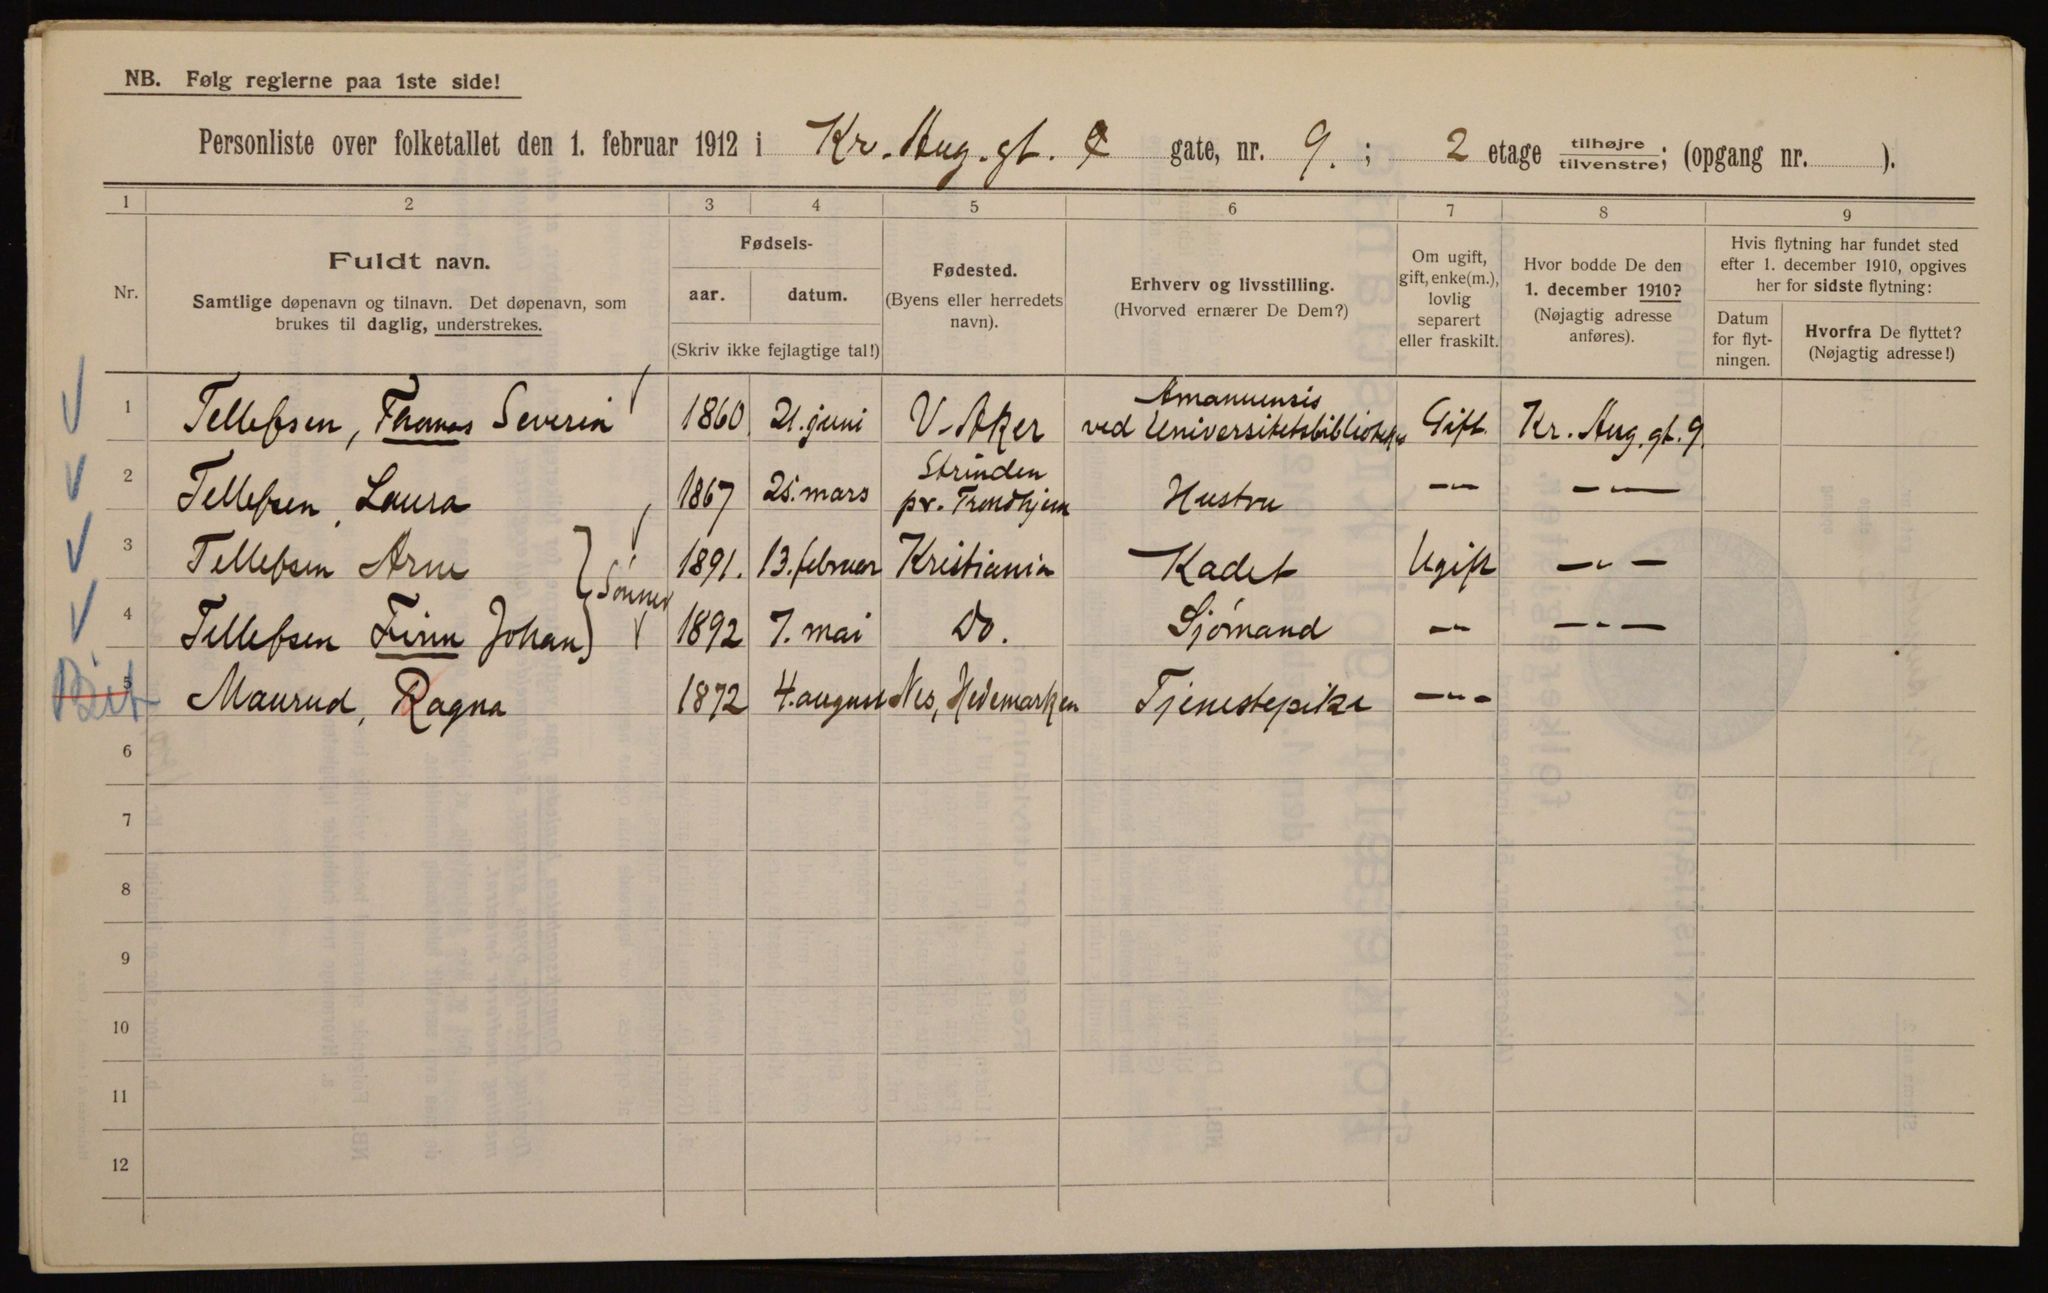 NB. Følg reglerne paa 1ste side!
Personliste over folketallet den 1. februar 1912 i Kr. Aug. gt. gate, nr. 9. ; 2 etage tilhøjre tilvenstre; (opgang nr. ).
1 2 3 4 5 6 7 8 9
Nr.
Fuldt navn.
Samtlige døpenavn og tilnavn. Det døpenavn, som
brukes til daglig, understrekes.
Fødsels-
aar. datum.
(Skriv ikke fejlagtige tal!)
Fødested.
(Byens eller herredets
navn).
Erhverv og livsstilling.
(Hvorved ernærer De Dem?)
Om ugift,
gift, enke(m.),
lovlig
separert
eller fraskilt.
Hvor bodde De den
1. december 1910?
(Nøjagtig adresse
anføres).
Hvis flytning har fundet sted
efter 1. december 1910, opgives
her for sidste flytning:
Datum
for flyt-
ningen.
Hvorfra De flyttet?
(Nøjagtig adresse!)
1 Tellefsen, Thomas Severin 1860 21. juni V. Aker Amanuensis
ved Universitetsbiblioteket Gift Kr. Aug. gt. 9.
2 Tellefsen, Laura 1867 25. mars Strinden
pr. Trondhjem Hustru -"- -"-
3 Tellefsen Arne 1891. 13. februar Kristiania Kadet Ugift -"-
} Sønner
4 Tellefsen Finn Johan 1892 7. mai Do. Sjømand -"- -"-
5 Maurud, Ragna 1872 4. august Nes, Hedemarken Tjenestepike -"-
6
7
8
9
10
11
12